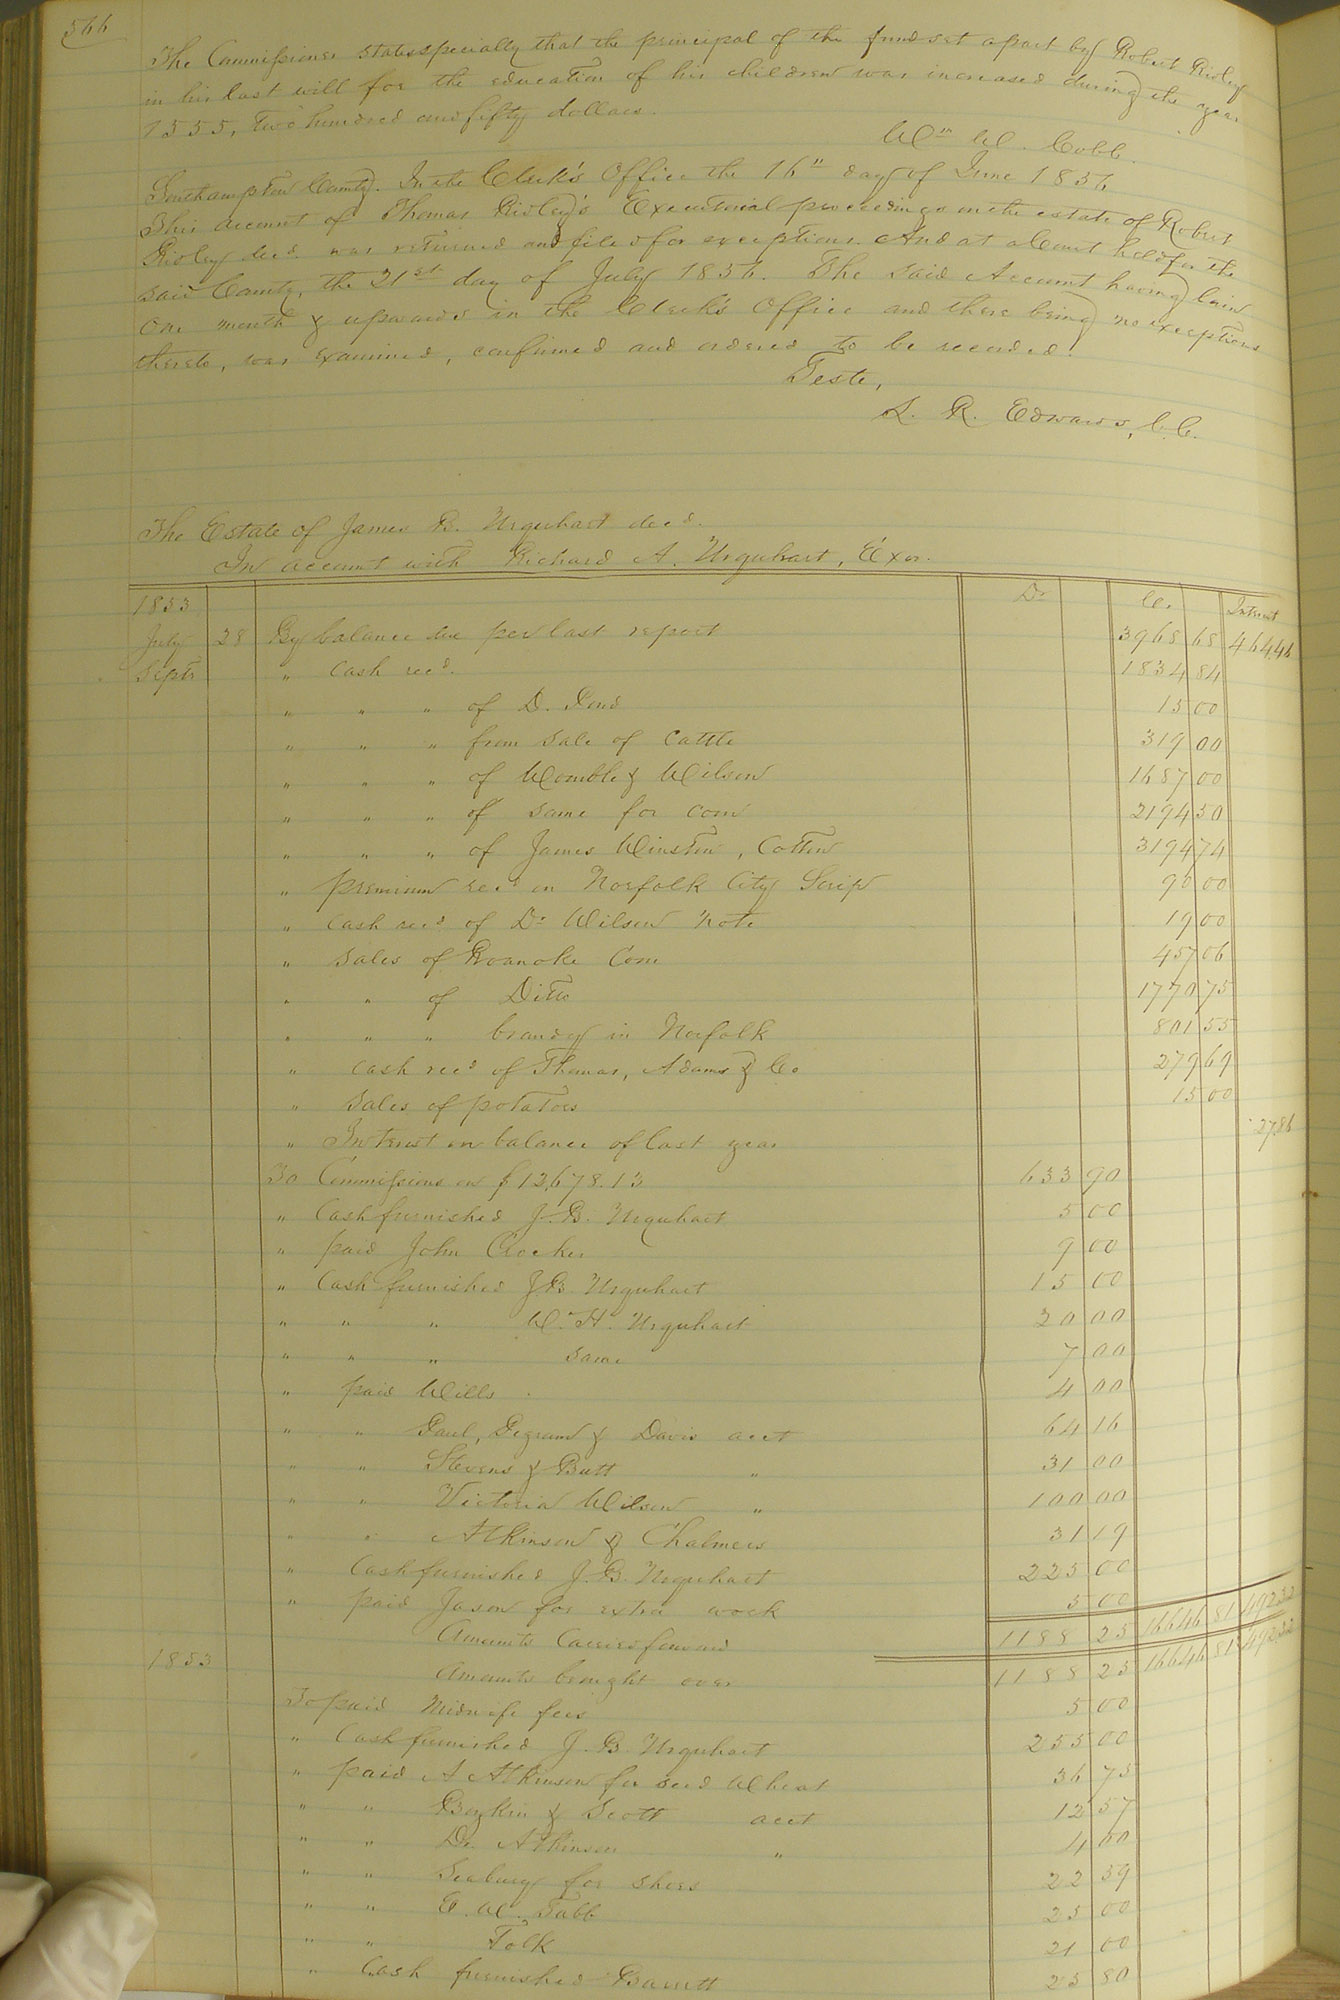 566
The Commissioner states specially that the principal of the fund set apart by Robert Ridley
in his last will for the education of his children was increased during the year
1855, two hundred and fifty dollars.
Wm W. Cobb.
Southampton County. In the Clerk's Office the 16" day of June 1856
This account of Thomas Ridley's Executorial proceedings on the estate of Robert
Ridley decd. was returned and filed for exceptions. And at a Court held for the
said County, the 21st day of July 1856. The said Account having lain
one month & upwards in the Clerk's Office and there being no exceptions
thereto, was examined, confirmed and ordered to be recorded.
Teste,
L. R. Edwards, C.C.
The Estate of James B. Urquhart decd.
In account with Richard A. Urquhart, Exor.
1853 Dr Cr. Interest
July 28 By balance due per last report 3968 68 464.46
Septr " cash recd. 1834 84
" " " of D. Pond 15 00
" " " from sale of Cattle 319 00
" " " of Womble & Wilson 1687 00
" " " of same for corn 2194 50
" " " of James Winston, Cotton 3194 74
" premium recd on Norfolk City Scrip 90 00
" cash recd of Dr Wilson Note 19 00
" sales of Roanoke Corn 457 06
" " of Ditto 1770 75
" " " brandy in Norfolk 801 55
" cash recd of Thomas, Adams & Co 279 69
" sales of potatoes 15 00
" Interest on balance of last year 27.86
To Commissions on $12,678.13 633 90
" Cash furnished J. B. Urquhart 5 00
" paid John Crocker 9 00
" Cash furnished J B. Urquhart 15 00
" " " W. H. Urquhart 30 00
" " " same 7 00
" paid Wills 4 00
" " Paul, Pegram & Davis acct 64 16
" " Stevens & Butt " 31 00
" " Victoria Wilson " 100 00
" " Atkinson & Chalmers 31 19
" Cash furnished J. B. Urquhart 225 00
" paid Jason for extra work 5 00
Amounts Carried forward 1188 25 16646 81 492.32
1853 Amounts brought over 1188 25 16646 81 492.32
To paid Midwife fees 5 00
" Cash furnished J. B. Urquhart 255 00
" paid A Atkinson for seed Wheat 36 75
" " Boykin & Scott acct 12 57
" " Dr. Atkinson " 4 00
" " Seabury for shoes 22 39
" " E. W. Tabb 25 00
" " Folk 21 00
" Cash furnished Barrett 25 80